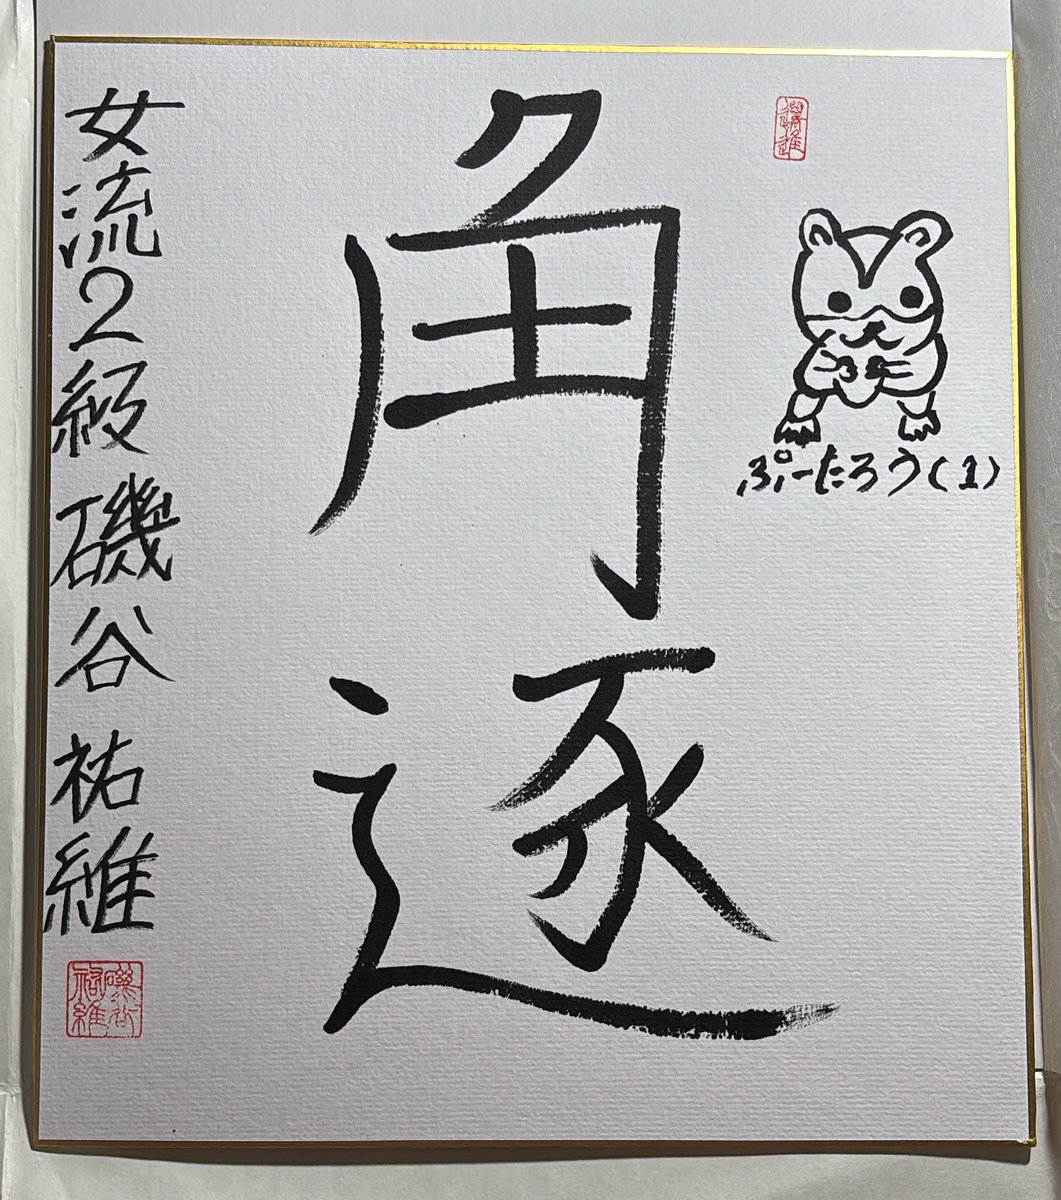 ぷーたろう(1)
角逐
女流2級 磯谷 祐維
磯谷
祐維